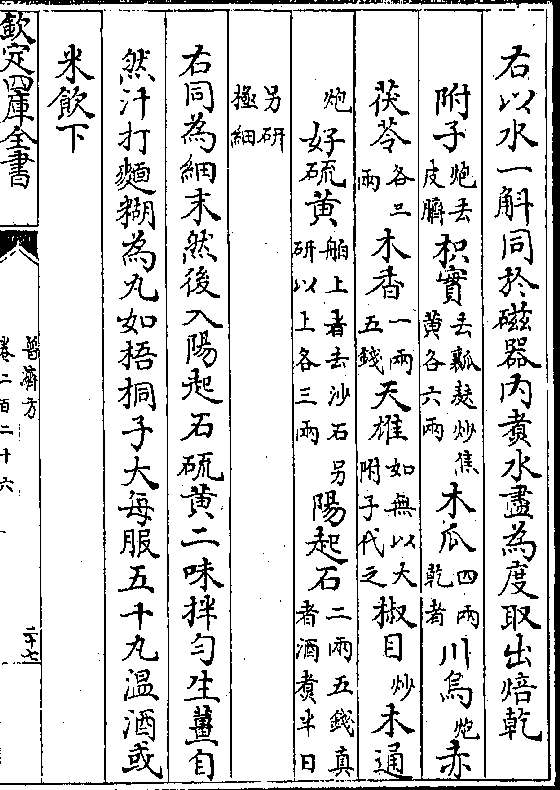 右以水一斛同於磁器内煮水盡為度取出焙乾
附子炮去皮臍枳實去瓤麸炒焦黄各六兩木瓜四兩乾者川烏炮赤
茯苓各三兩木香一兩五錢天雄如無以大附子代之椒目炒木通
炮好硫黄舶上者去沙石另研以上各三兩陽起石二兩五錢真者酒煮半日
另研極細
右同為細末然後入陽起石硫黄二味拌勻生薑自
然汁打麵糊為丸如梧桐子大每服五十丸温酒或
米飲下
欽定四庫全書
普濟方
卷二百二十六
二十七